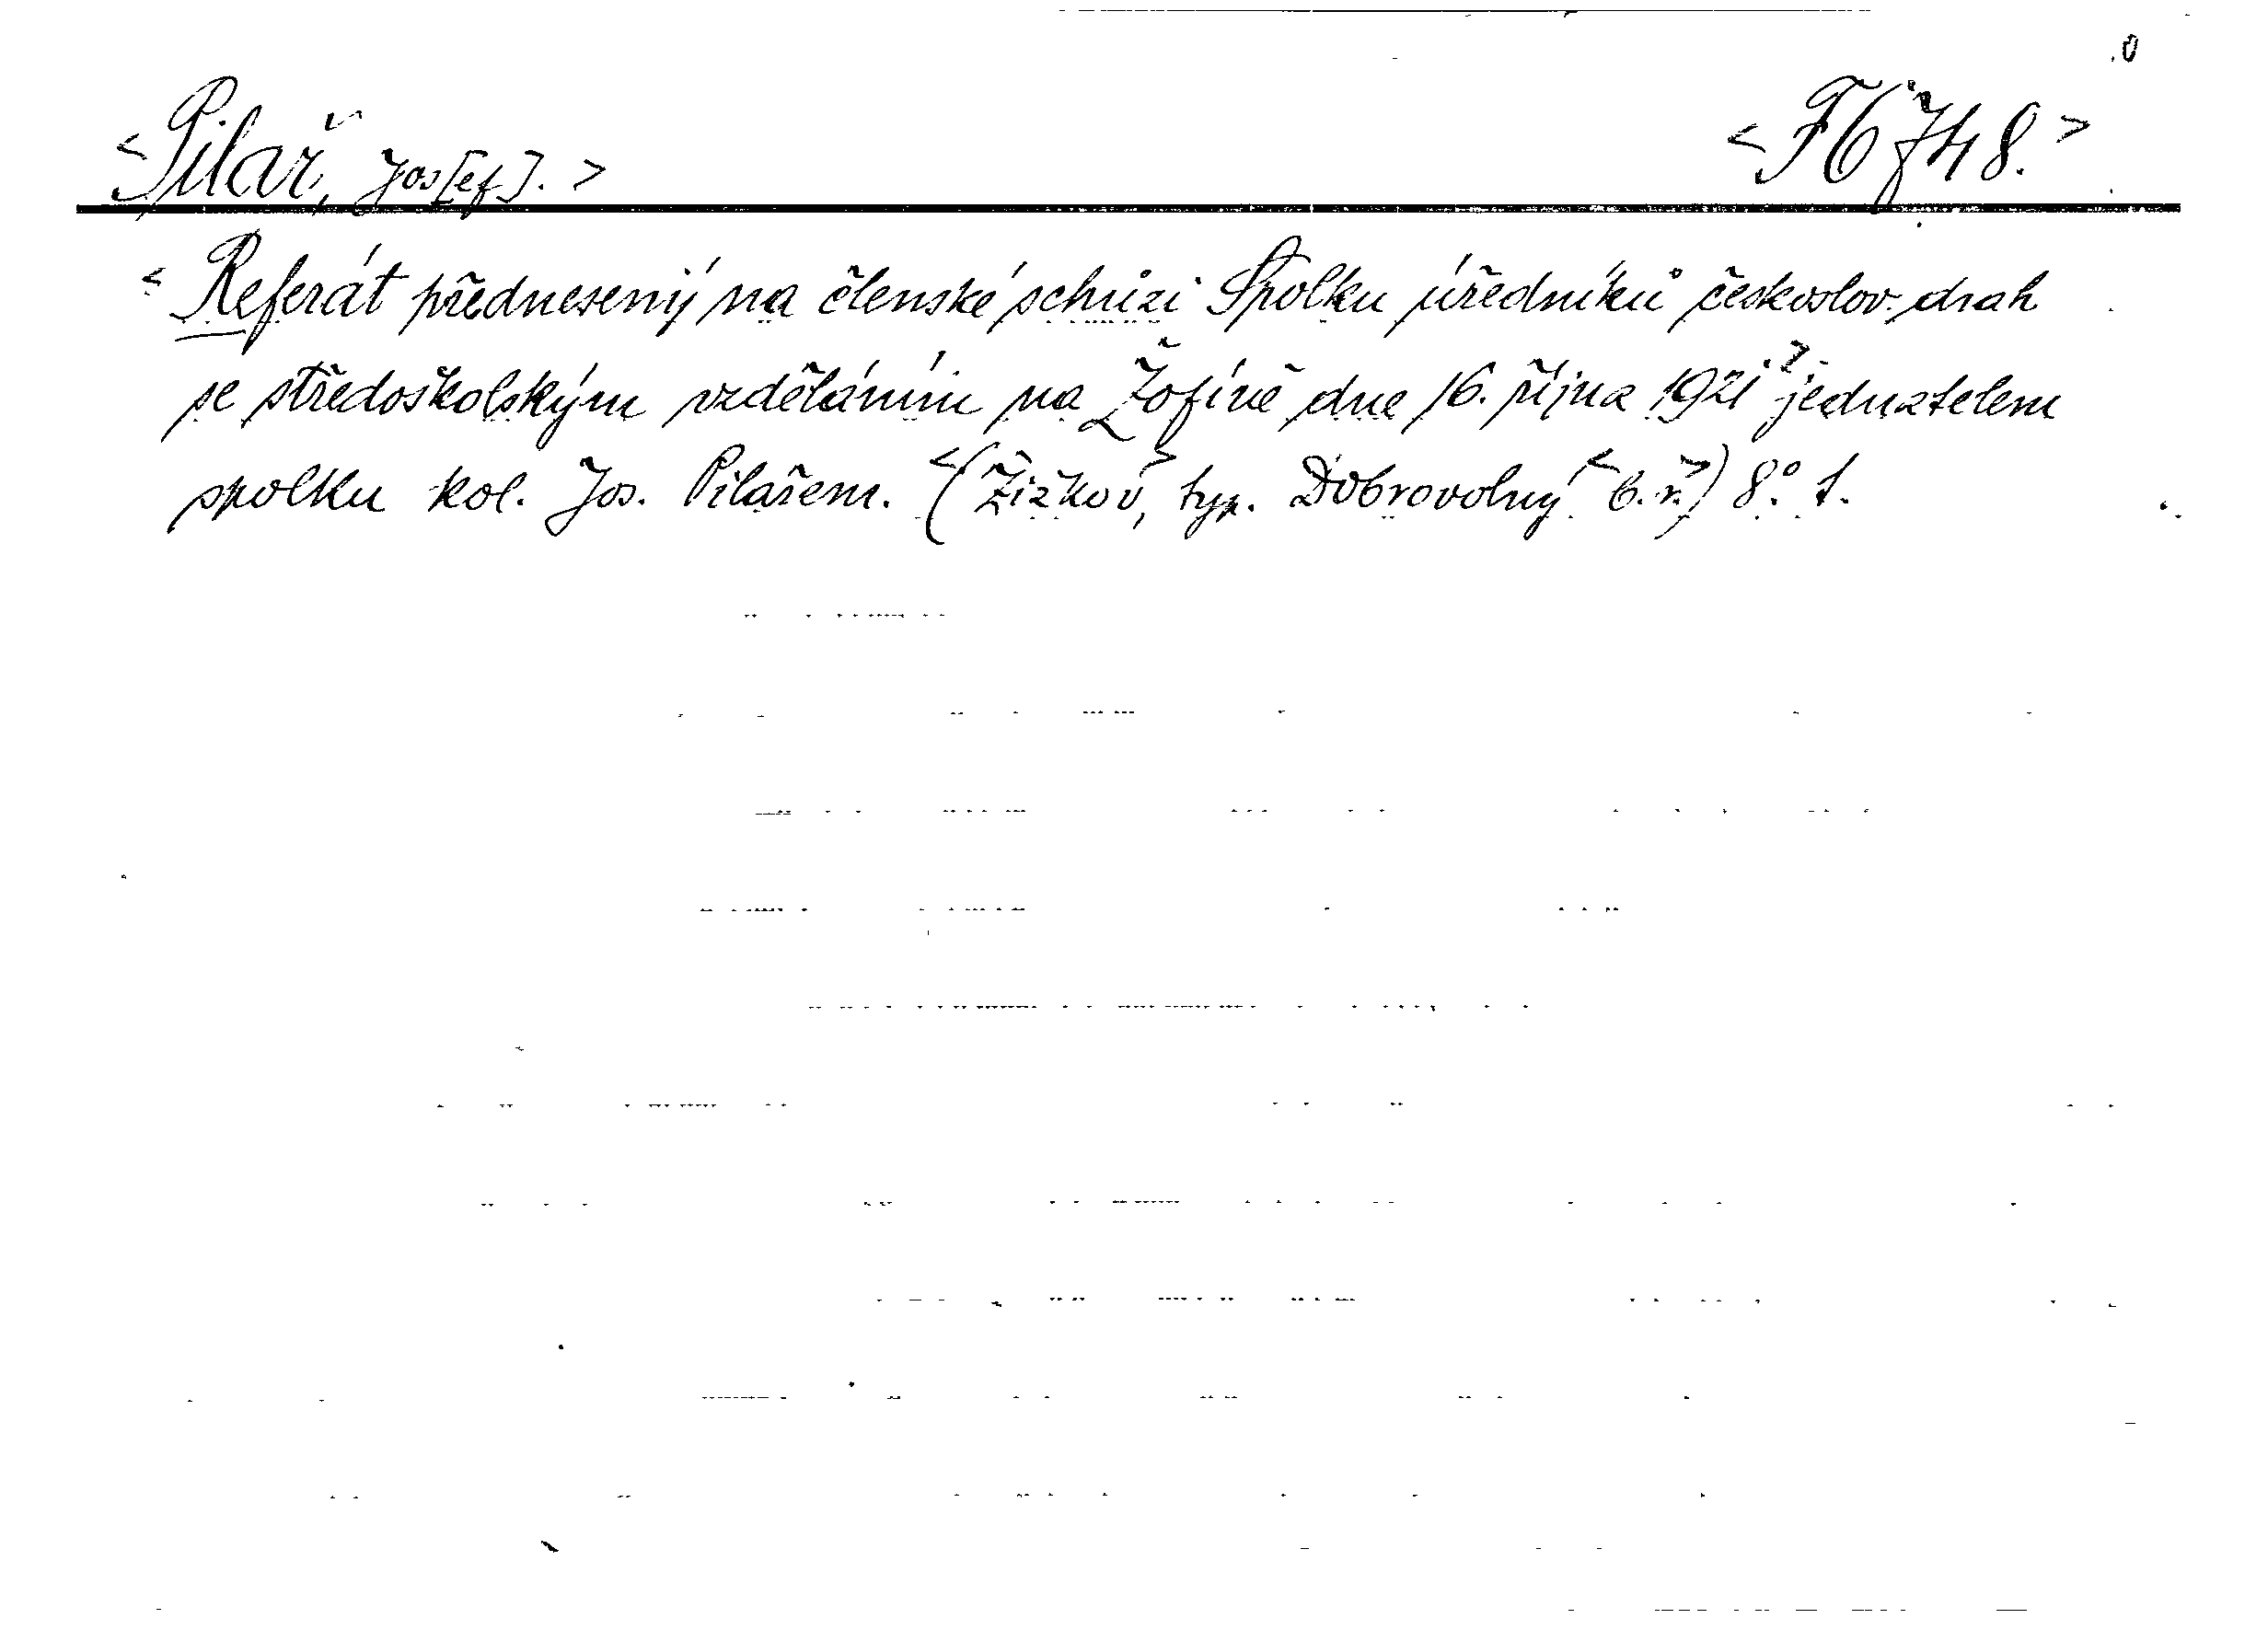 <Pilař, Jos[ef]. > <F6 748.>
< Referát přednesený na členské schůzi Spolku úředníků českoslov. drah
se středoškolským vzděláním na Žofíně dne 16. října 1921 > jednatelem
spolku kol. Jos. Pilařem. <(Žižkov,> typ. Dobrovolný < b.r.>) 8.° 1.